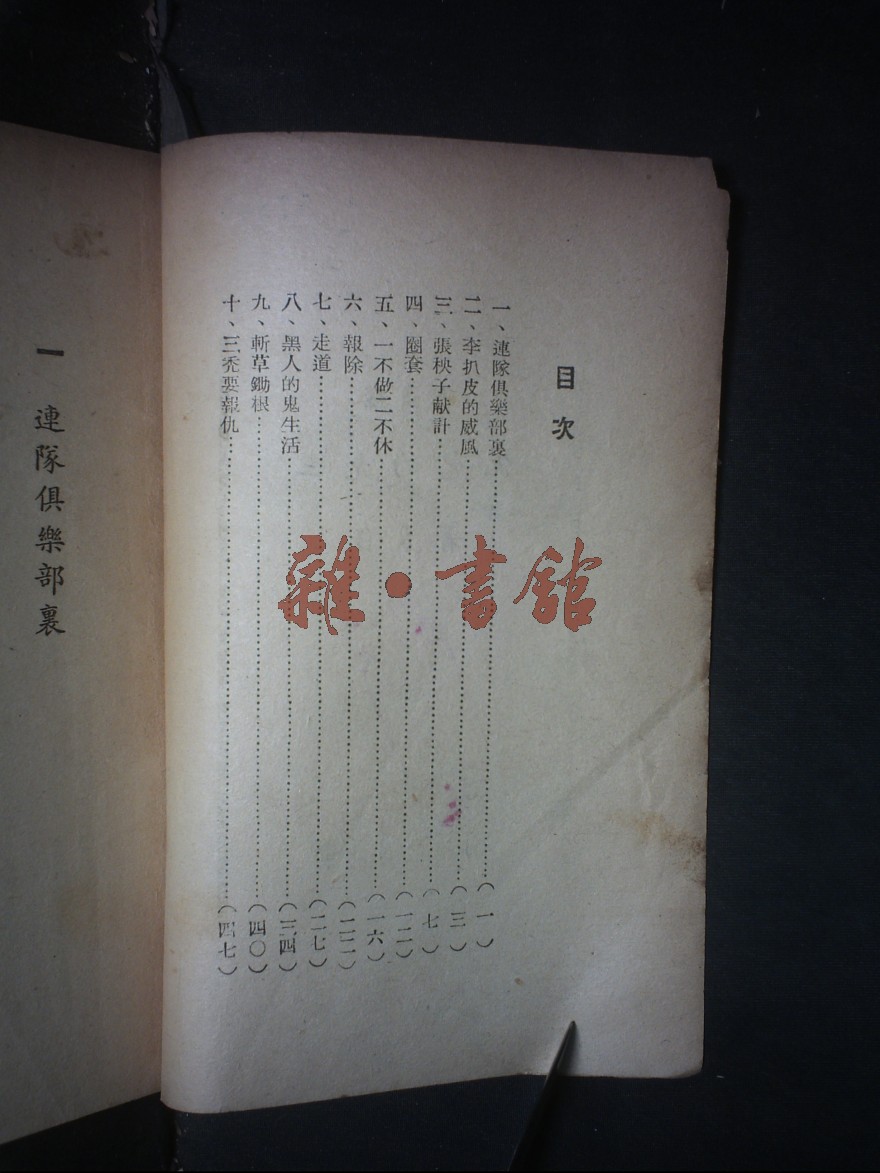 目次
一、連隊俱樂部裏………(一)
二、李扒皮的威風………(三)
三、張秧子献計………(七)
四、圈套………(一二)
五、一不做二不休………(一六)
六、報除………(二二)
七、走道………(二七)
八、黑人的鬼生活………(三四)
九、斬草鋤根………(四〇)
十、三禿要報仇………(四七)
一 連隊俱樂部裏
雜·書館